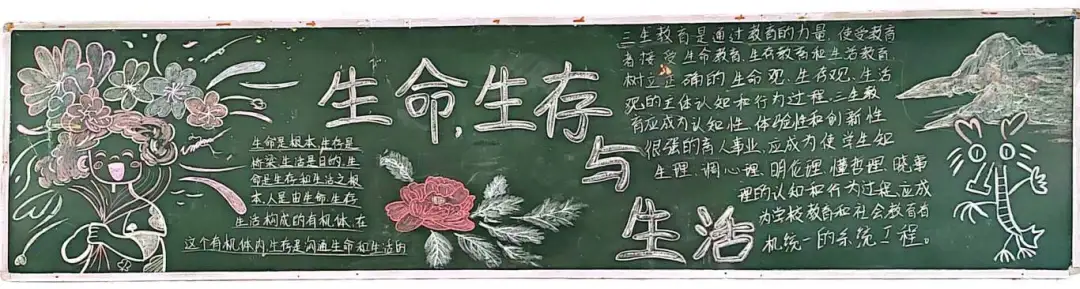 生命,生存
与
生活
生命是根本,生存是
桥梁,生活是目的,生
命是生存和生活之根
本,人是由生命,生存
生活构成的有机体,在
这个有机体内,生存是沟通生命和生活的
三生教育是通过教育的力量,使受教育
者接受生命教育、生存教育和生活教育,
树立正确的生命观、生存观、生活
观的主体认知和行为过程,三生教
育应成为认知性、体验性和创新性
很强的育人事业、应成为使学生知
生理、调心理、明伦理、懂哲理、晓事
理的认知和行为过程,应成
为学校教育和社会教育有
机统一的系统工程。